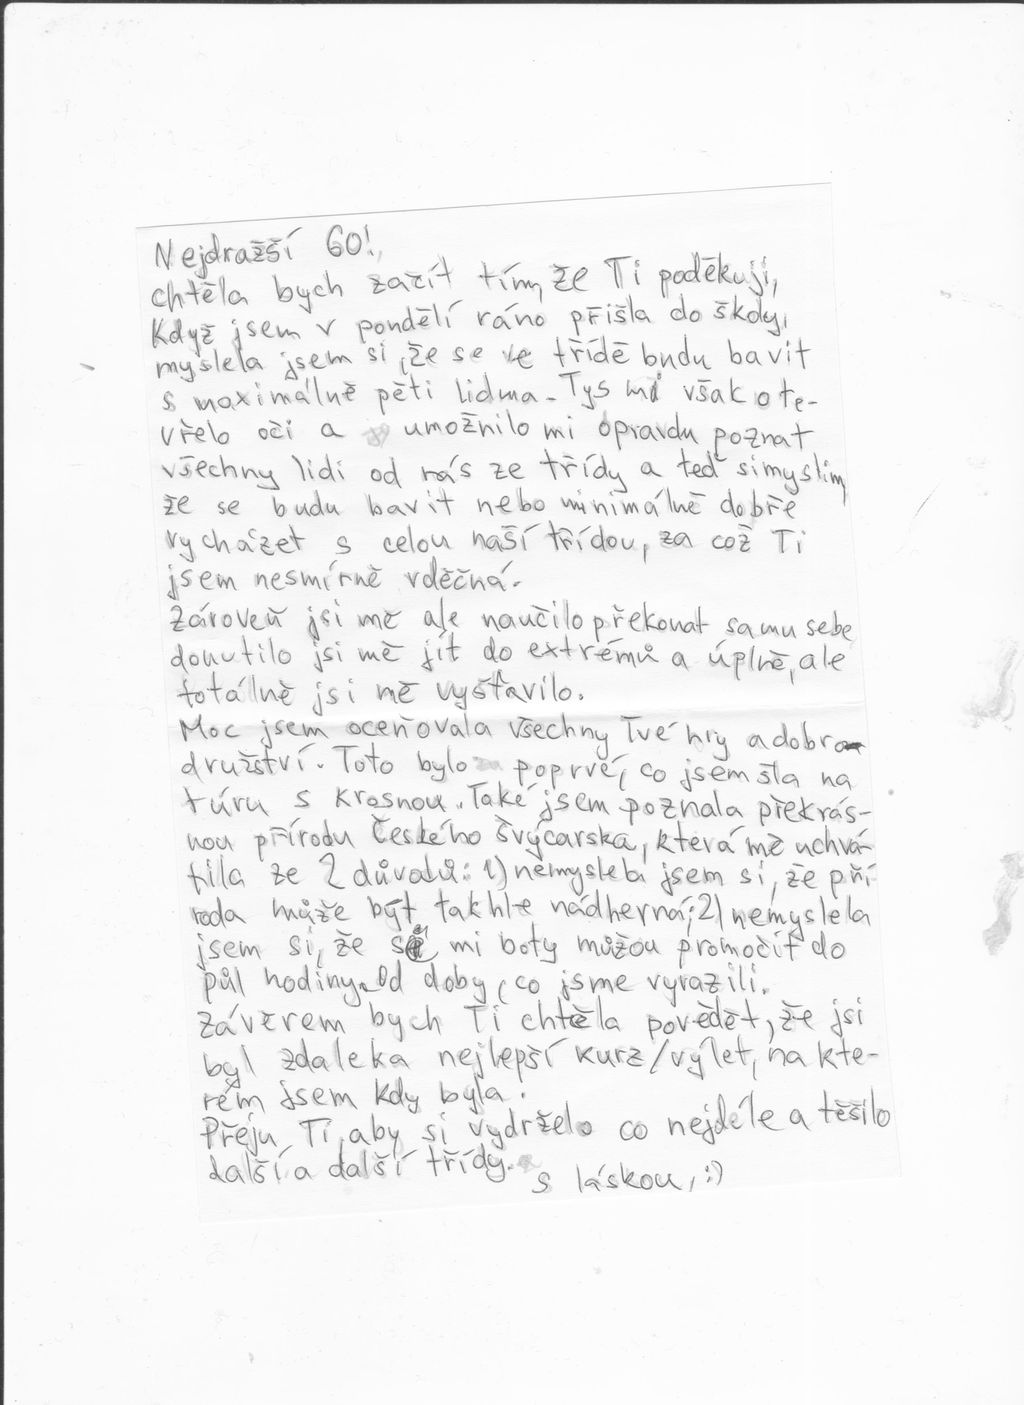 Nejdražší GO!,
chtěla bych začít tím, že Ti poděkuji,
Když jsem v pondělí ráno přišla do školy,
myslela jsem si, že se ve třídě budu bavit
s maximálně pěti lidma. Tys mi však ote-
vřelo oči a umožnilo mi opravdu poznat
všechny lidi od nás ze třídy a teď si myslím,
že se budu bavit nebo minimálně dobře
vycházet s celou naší třídou, za což Ti
jsem nesmírně vděčná.
Zároveň jsi mě ale naučilo překonat samu sebe
donutilo jsi mě jít do extrémů a úplně, ale
totálně jsi mě vyšťavilo.
Moc jsem oceňovala všechny Tvé hry a dobro-
družství. Toto bylo poprvé, co jsem šla na
túru s krosnou. Také jsem poznala překrás-
nou přírodu Českého Švýcarska, která mě uchvá-
tila ze 2 důvodů: 1) nemyslela jsem si, že pří-
roda může být takhle nádherná; 2) nemyslela
jsem si, že si mi boty můžou promočit do
půl hodiny od doby, co jsme vyrazili.
Závěrem bych Ti chtěla povědět, že jsi
byl zdaleka nejlepší kurz/výlet, na kte-
rém jsem kdy byla.
Přeju Ti, aby si vydrželo co nejdéle a těšilo
další a další třídy.
s láskou, :)